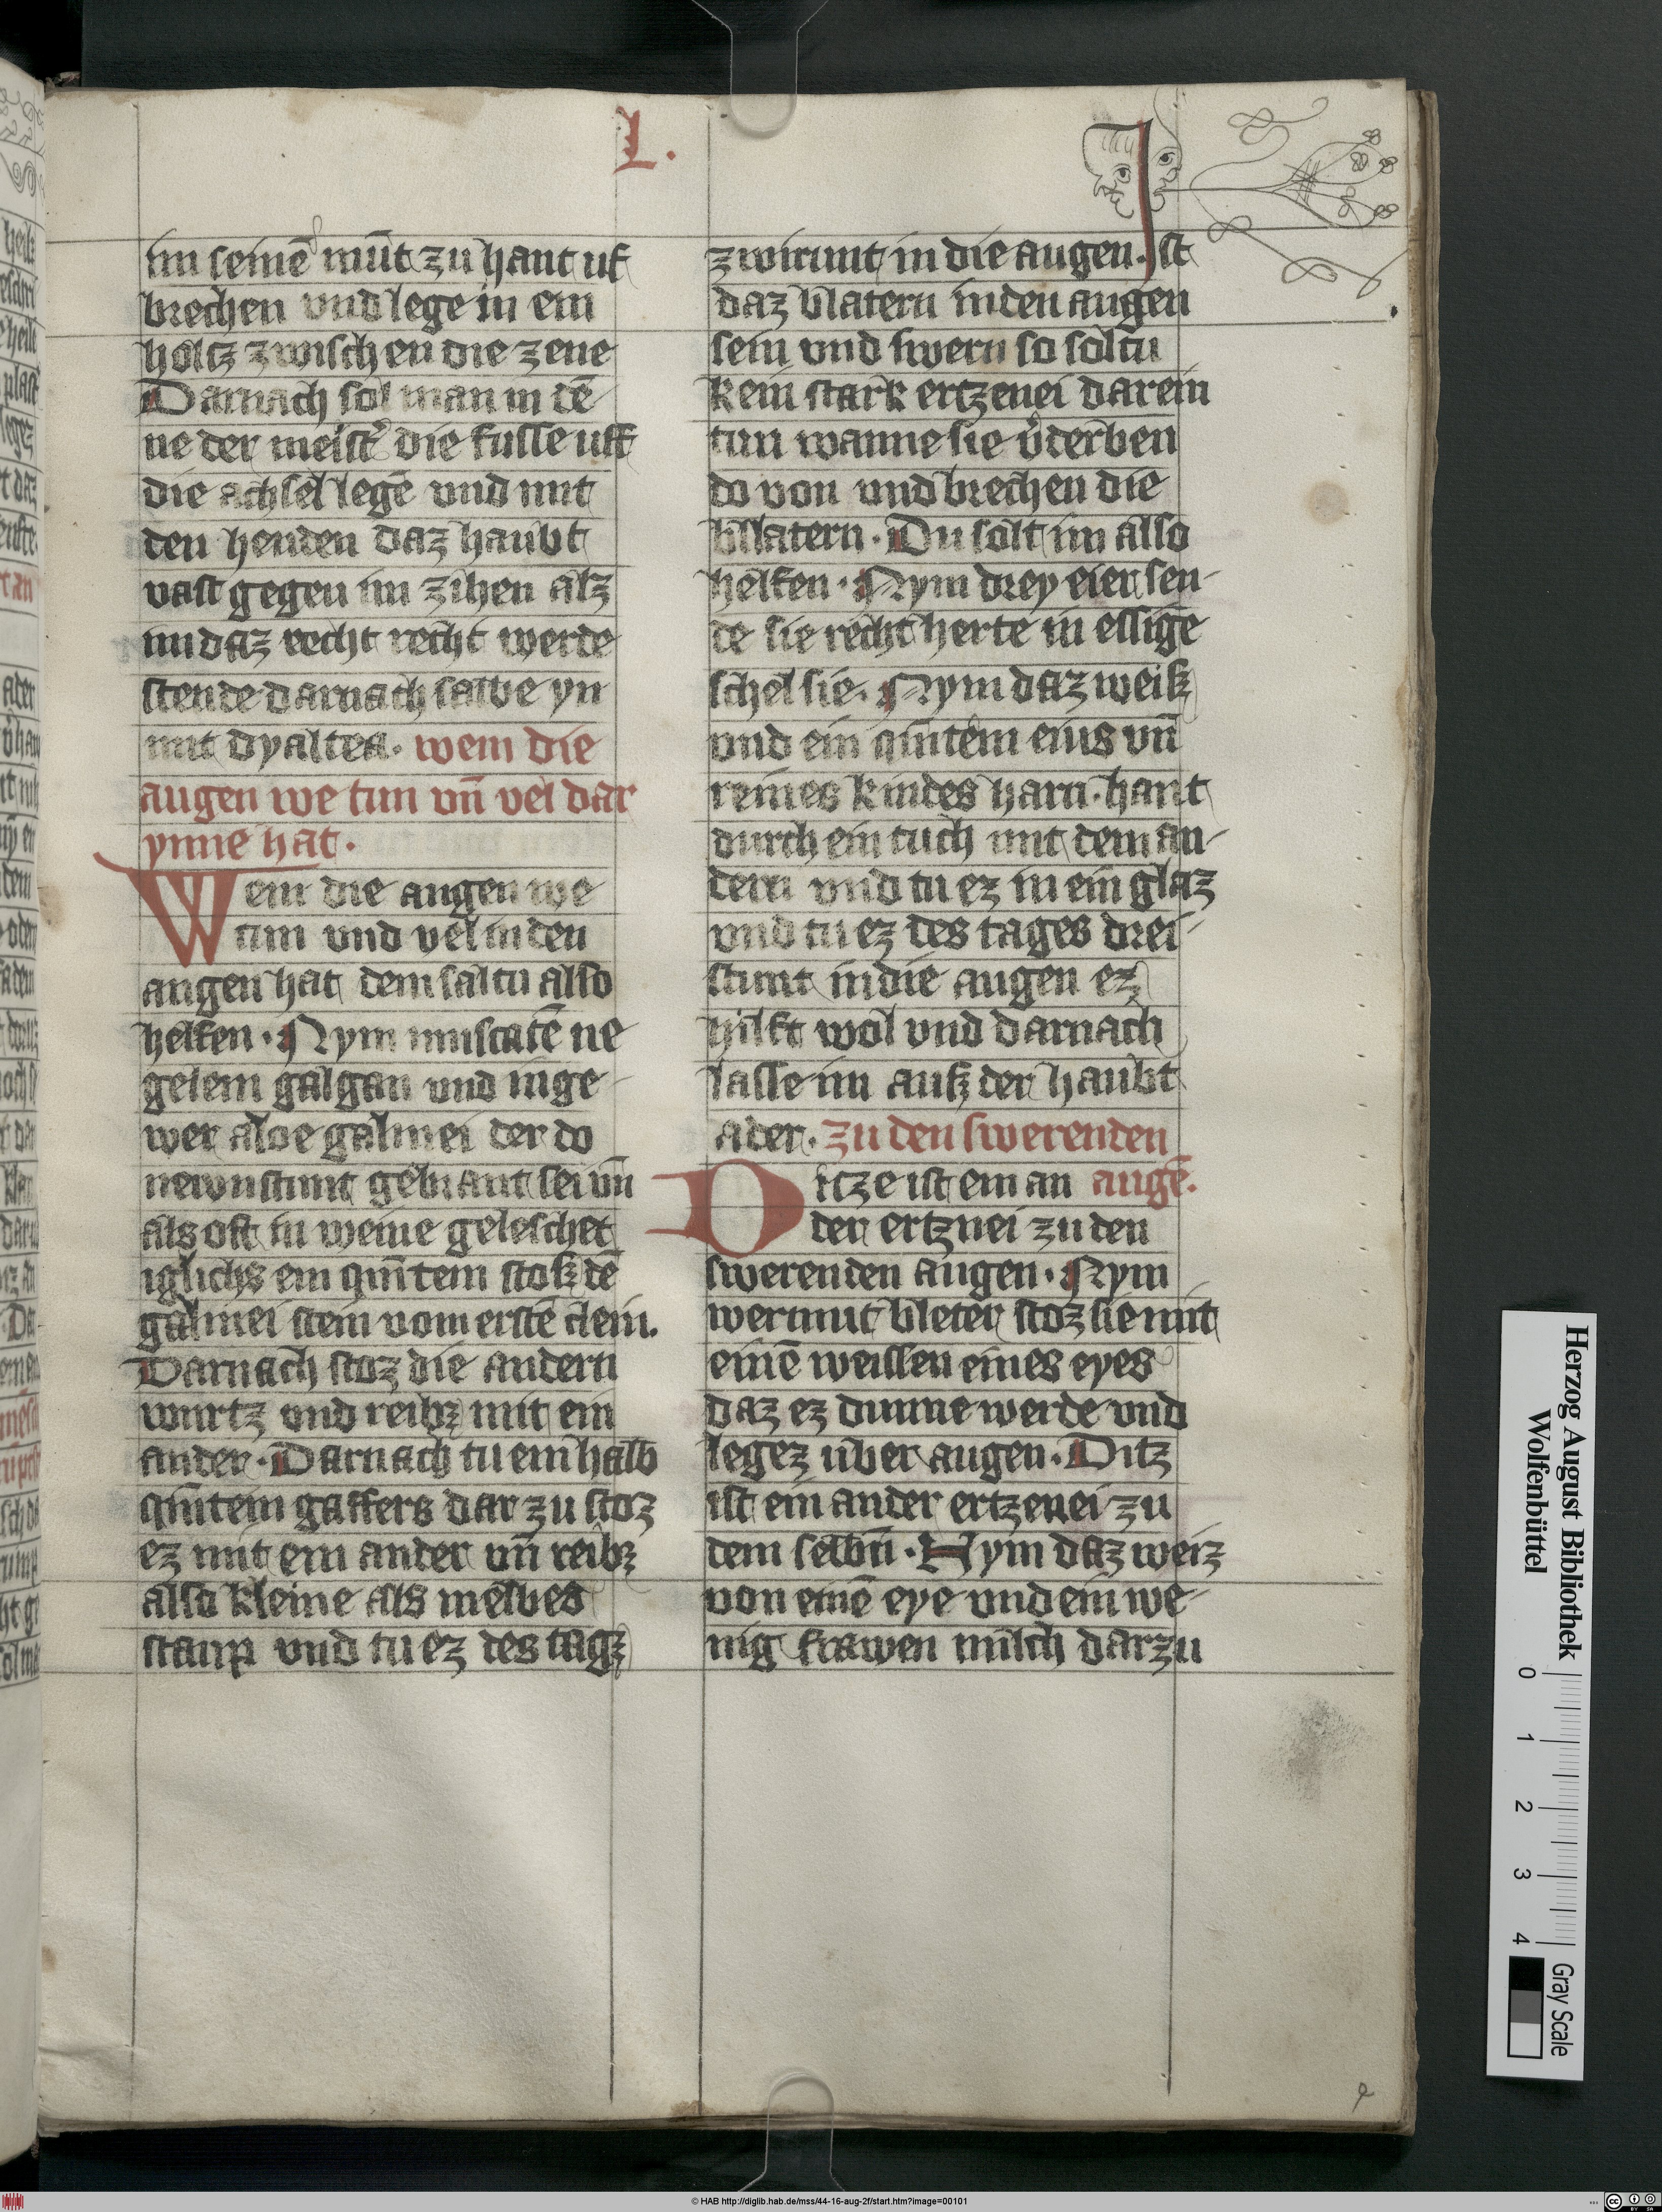 L.
im seinē mūt zu hant uf
brechen vnd lege in ein
holtz zwischen die zene
Darnach sol man in de
ne der meistˀ die fusse uff
die achsel legē vnd mit
den henden daz haubt
vast gegen im zihen alz
im daz recht recht werde
stende darnach salbe yn
mit dyaltea. wem die
augen we tun vn̄ vel dar
ynne hat.
Wem die augen we
tun vnd vel in den
augen hat dem saltu also
helfen. Nym muscatē ne
gelein galgan vnd inge
wer aloe galmei der do
newnstunt gebrant sei vn̄
als oft in weine geleschet
iglichs ein qūitein stoß dē
galmei stein vom erstē clein.
Darnach stoz die andern
wurtz vnd reibz mit ein
ander. Darnach tu ein halb
qūitein gaffers dar zu stoz
ez mit ein ander vn̄ reibz
also kleine als melbes
staup vnd tu ez des tagz
zwirunt in die augen. Ist
daz blatern in den augen
sein vnd swern so soltu
kein stark ertzenei darein
tun wanne sie v̓derben
do von vnd brechen die
bllatern. Du solt im also
helfen. Nym drey eier sen
de sie recht herte in essige
schel sie. Nym daz weiß
vnd ein quītein eius vn̄
reines kindes harn. hant
durch ein tuch mit dem an
dern vnd tu ez in ein glaz
vnd tu ez des tages drei
stunt in die augen ez
hilft wol vnd darnach
lasse im auß der haubt
ader. zu den swerenden
Ditze ist ein an augē.
der ertznei zu den
swerenden augen. Nym
wermut bleter stoz sie mit
einē weissen eines eyes
daz ez dunne werde vnd
legez uber augen. Ditz
ist ein ander ertzenei zu
dem selbn̄. Nym daz weiz
von einē eye vnd ein we
nig frawen milch darzu
Herzog August Bibliothek
Wolfenbüttel
0 1 2 3 4
Gray Scale
© HAB http://diglib.hab.de/mss/44-16-aug-2f/start.htm?image=00101